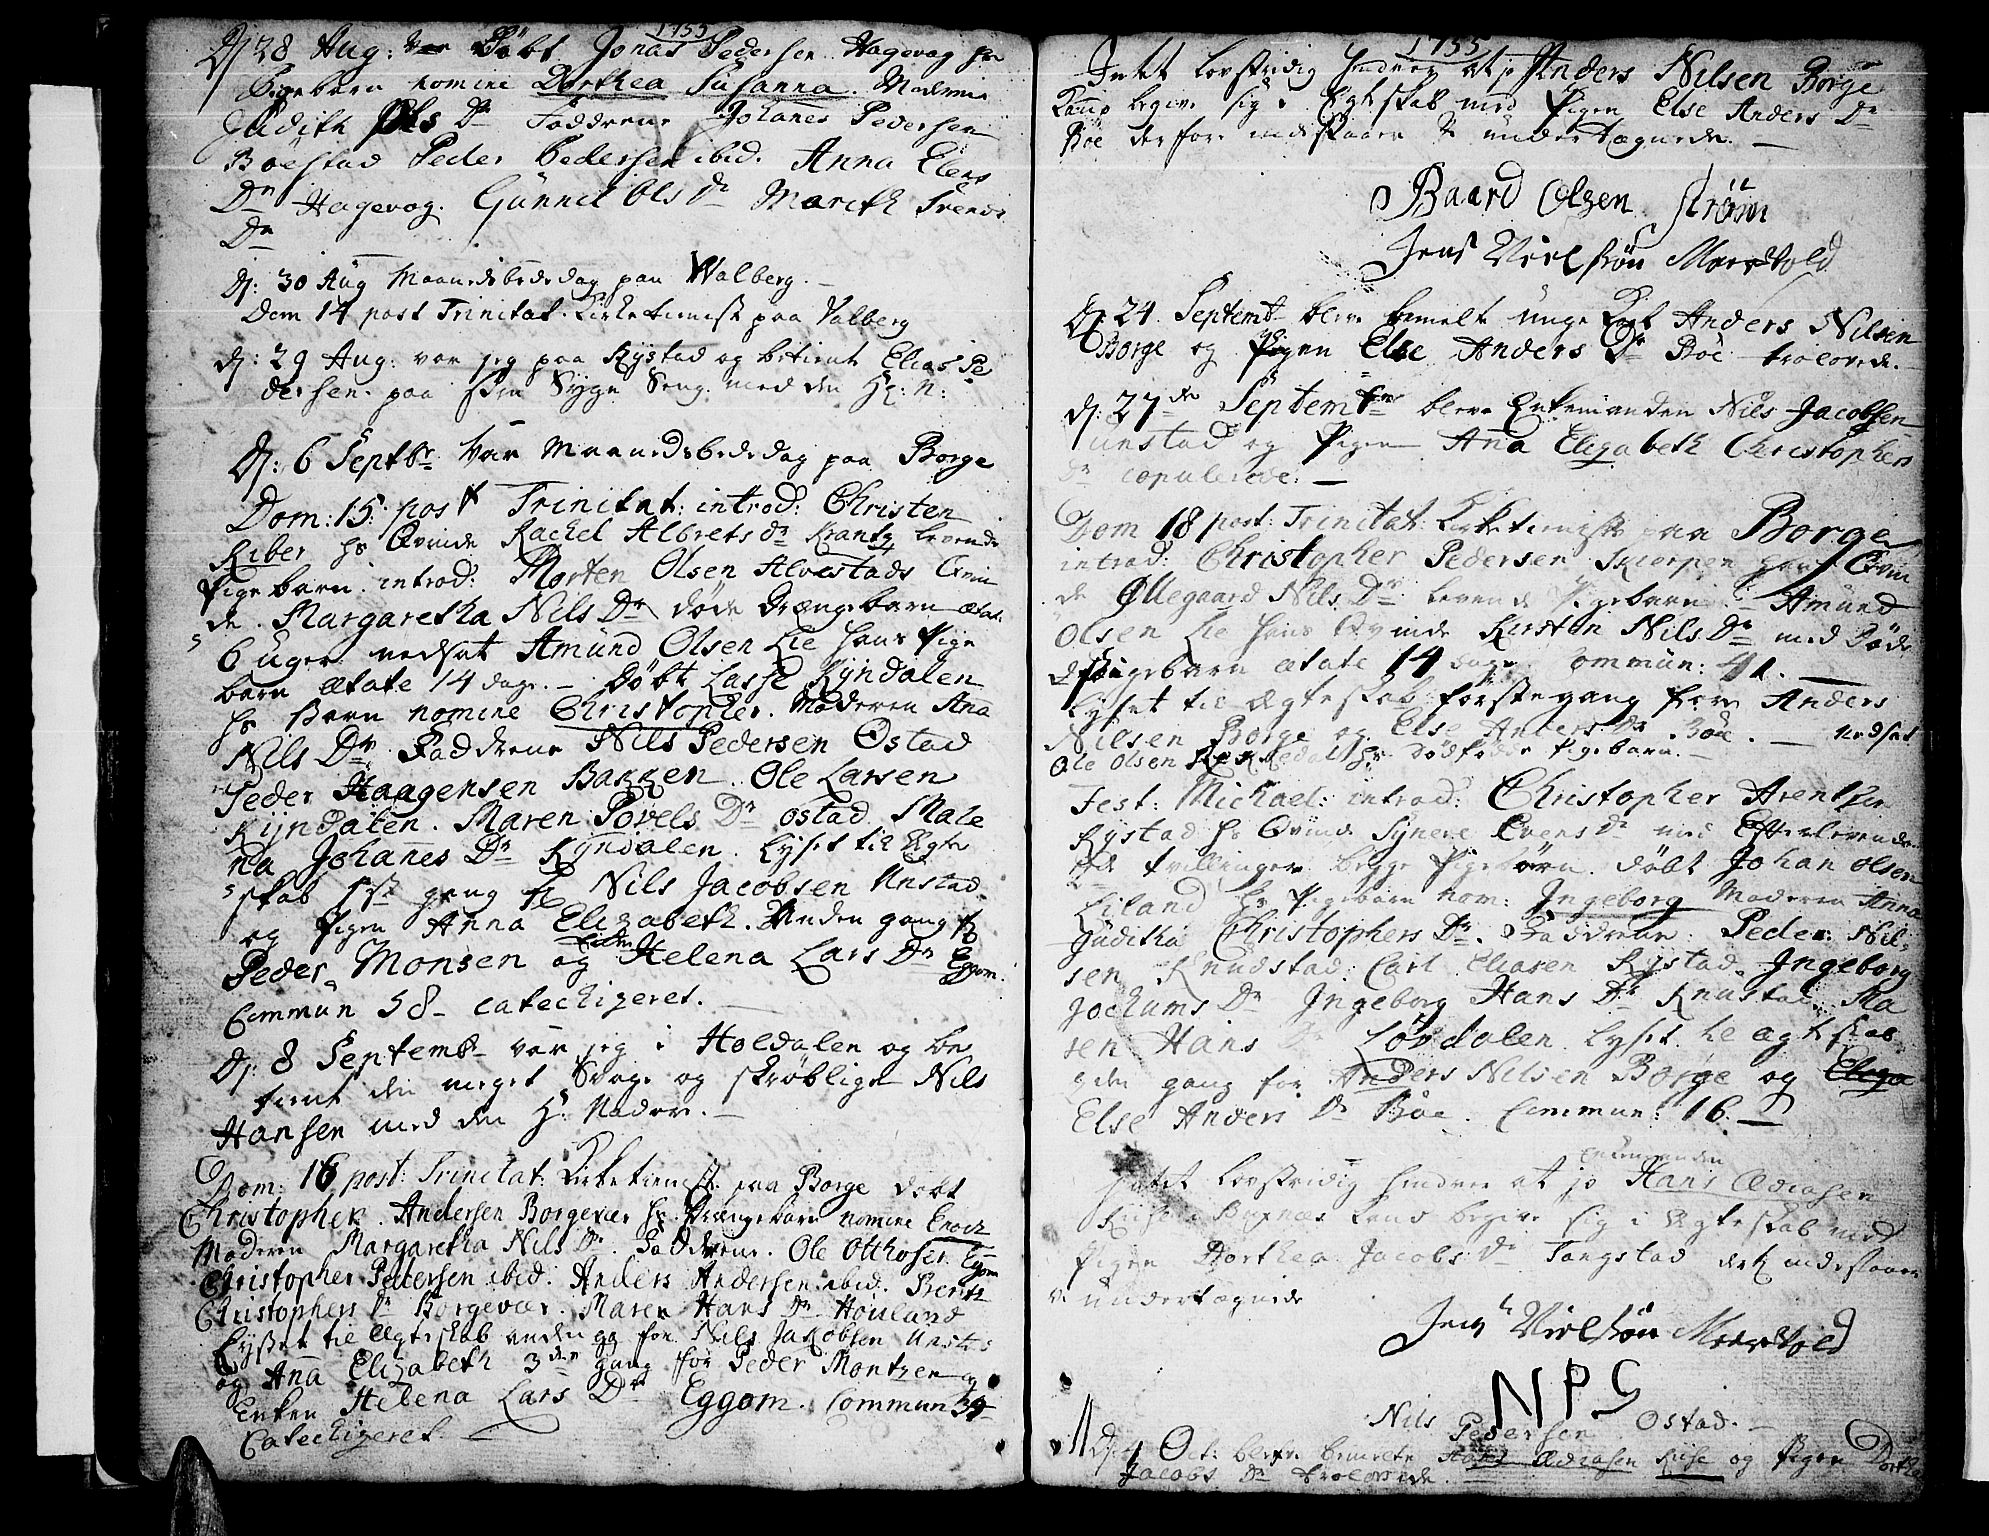 1755
Dj 28 Aug: Döbt Jonas Pedersen Hagevog hs
Pigebarn nomine Dorthea Susanna. Moderen
Judith Ols Dr Faddrene Johanes Pedersen
Boestad Peder Pedersen ibid. Anna Elens
Dr Hagevog. Gunnil Ols Dr Mareth Svends
Dr
Dj: 30 Aug Maanedsbededag paa Walberg.
Dom 14 post Trinitat. Kirketieniste paa Valberg
dj: 29 Aug: var jeg paa Rystad og betient Elias Pe
dersen paa sin Syge Seng med den H: N:
Dj: 6 Septbr var Maanedsbededag paa Borge
Dom: 15: post Trinitat: introd: Christen
Riber hs Qvinde Rachel Albrets dr Krantz levende
Pigebarn. introd: Morten Olsen Alvestads Qvin
de Margaretha Nils Dr döde Drængebarn ætat.
6 Uger. nedsat Amund Olsen Lie hans Pige
barn ætate 14 dage. – Döbt Lasse Kyndalen
hs Barn nomine Christopher. Moderen Ana
Nils Dr. Faddrene Nils Pedersen Ostad
Peder Haagensen Bakken. Ole Larsen
Kyndalen. Maren Povels Dr Ostad Male
na Johanes Dr Kyndalen. Lyst til Ægte
skab 1ste gang for Nils Jacobsen Unstad
og Pigen Anna Elizabeth. Anden gang for
Peder Monsen og Enken Helena Lars Dr Eggom.
Commun 58 – catechizeret.
Dj: 8 Septembr var jeg i Holdalen og be
tient den meget Svage og skröblige Nils
Hansen med den H: Nadver. –
Dom: 16 post: Trinitat: Kirketienst: paa Borge döbt
Christopher Andersen Borgevær hs Drængebarn nomine Enoch
Moderen Margaretha Nils Dr. Faddrene. Ole Otthosen Egom
Christopher Pedersen ibid. Anders Andersen ibid. Berith
Christophers Dr Borgevær. Maren Hans Dr Houland
Lyset til Ægteskab anden gg for Nils Jakobsen Unsta:
og Ana Elizabeth 3die gang for Peder Montzen og
Enken Helena Lars Dr Eggom. Commun 39
Catechizeret. –
1755
Intet lovstridig hindrer at jo Anders Nilsen Borge
kand begive sig i Egteskab med Pigen Else Anders Dr
Böe derfore indestaaer vi undertegnede. –
Baard Olsen ström
Jens Nielssøn Mærvold
Dj 24 Septembr bleve bemelte unge Karl Anders Nilsen
Borge og Pigen Else Anders Dr Böe trolovede.
dj: 27de Septembr bleve Enkemanden Nils Jacobsen
Unstad og Pigen Ana Elizabeth Christophers
dr copulerede. –
Dom 18 post: Trinitat: Kirketieniste paa Borge
introd: Christopher Pedersen Skierpen hans Qvin
de Øllegaard Nils Dr levende Pigebarn – Amund
Olsen Lie hans Qvinde Kirsten Nils Dr med Döde
Pigebarn ætate 14 dage. Commun: 41. –
Lyset til Ægteskab förstegang for Anders
Nilsen Borge og Else Anders Dr Böe. – nedsat
Ole Olsen hs dödfödde Pigebarn –
Fest: Michael: introd: Christopher Arentsen
Rystad hs Qvinde Synere Evens dr med Efterlevende
tvillinger begge Pigebörn. döbt Johan Olsen
Eiland hs Pigebarn nom: Ingeborg Moderen Anna
Juditha Christophers Dr. Faddrene Peder Nil=
sen Knudstad Carl Eliasen Rystad. Ingeborg
Jochums Dr Ingeborg Hans Dr Knustad. Ma
ren Hans Dr Lövdalen. Lyset til ægteskab
2den gang for Anders Nilsen Borge og
Else Anders Dr Böe. Commun: 16. –
Intet lovstridig hindrer at jo Enkemanden Hans Adriasen
Riise i Buxnæs kand begive sig i Ægteskab med
Pigen Dorthea Jacobs Dr Tangstad indestaaer
vi undertægnede
Jens Nielssøn Mærvold
NPS
Nils Pedersen Ostad. –
Dj: 4 Oct: bleve bemelte Hans Adriasen Riise og Pigen Dorthe
Jacobs Dr trolovede.